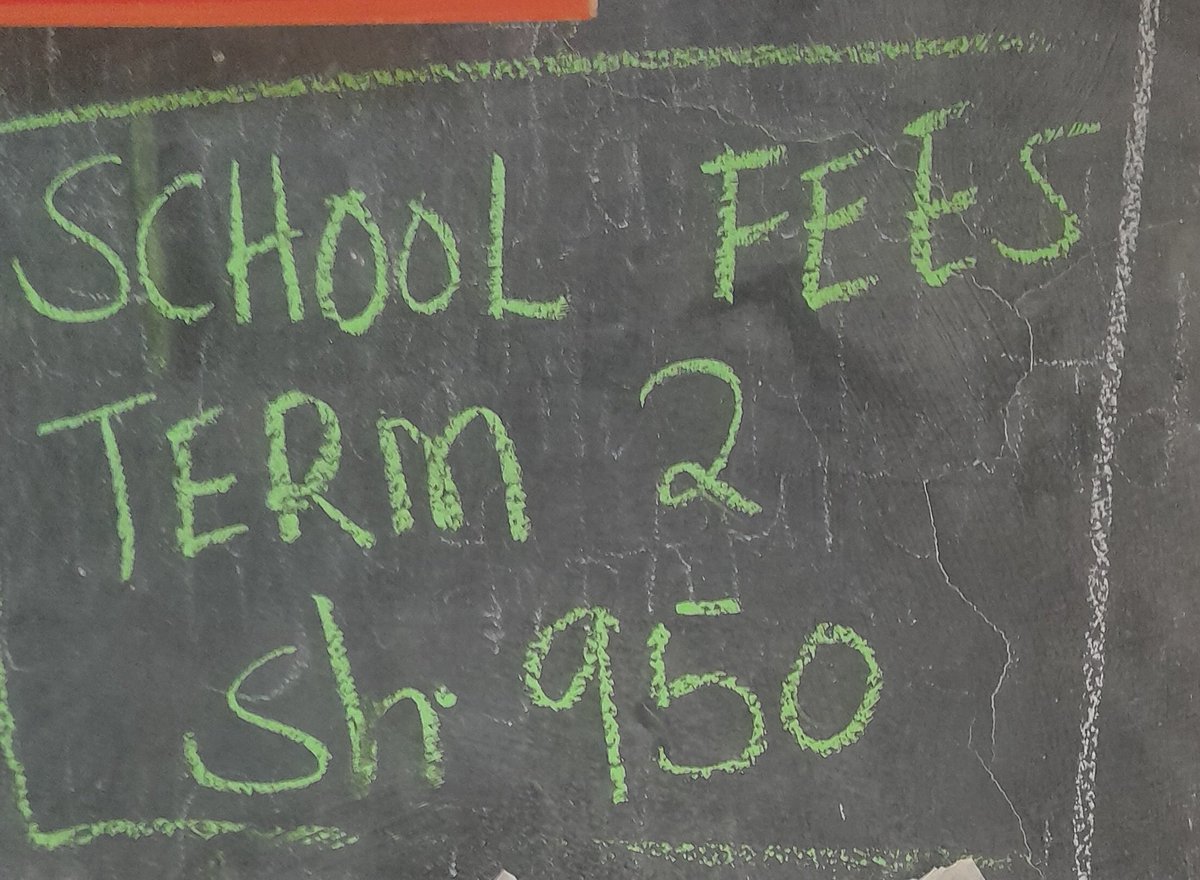 SCHOOL FEES
TERM 2
Sh 950